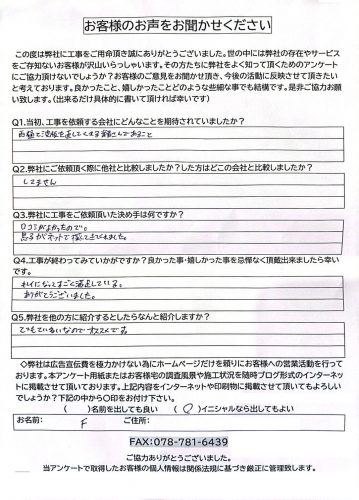 お客様のお声をお聞かせください
この度は弊社に工事をご用命頂き誠にありがとうございました。世の中には弊社の存在やサービス
をご存知ないお客様が沢山いらっしゃいます。その方たちに弊社をよく知って頂くためのアンケート
にご協力頂けないでしょうか?お客様のご意見をお聞かせ頂き、今後の活動に反映させて頂きたい
と考えております。良かったこと、嬉しかったことどのような些細な事でも結構です。是非ご協力お願
い致します。(出来るだけ具体的に書いて頂ければ幸いです)
Q1.当初、工事を依頼する会社にどんなことを期待されていましたか?
Q2.弊社にご依頼頂く際に他社と比較しましたか?した方はどこの会社と比較しましたか?
してません
Q3.弊社に工事をご依頼頂いた決め手は何ですか?
口コミがよかったので。
息子がネットで探してくれました。
Q4.工事が終わってみていかがですか?良かった事・嬉しかった事を忌憚なく頂戴出来ましたら幸い
です。
キレイになってすごく満足している。
ありがとうございました。
Q5.弊社を他の方に紹介するとしたらなんと紹介しますか?
とてもていねいなのでオススメです
◇弊社は広告宣伝費を極力かけない為にホームページだけを頼りにお客様への営業活動を行って
おります。本アンケート用紙またはお客様宅の調査風景や施工状況を随時ブログ形式のインターネッ
トに掲載させて頂いております。上記内容をインターネットや印刷物に掲載させて頂いてもよろしい
でしょうか?下記の中から〇印をお付け下さい。
( )名前を出しても良い (〇)イニシャルなら出してもよい
お名前: F ご住所:
FAX:078-781-6439
ご協力ありがとうございました。
当アンケートで取得したお客様の個人情報は関係法規に基づき厳正に管理致します。